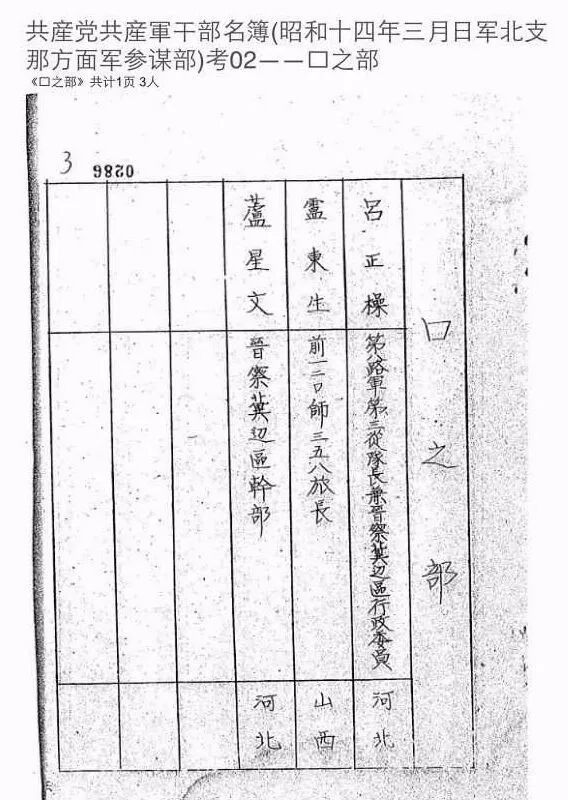 共産党共産軍干部名簿(昭和十四年三月日军北支
那方面军参谋部)考02——口之部
《口之部》共计1页 3人
3
0286
口之部
呂正操
第八路軍第三從隊長兼晉察冀辺區行政委員
河北
靈東生
前一二〇師三五八旅長
山西
蘆星文
晉察冀辺區幹部
河北